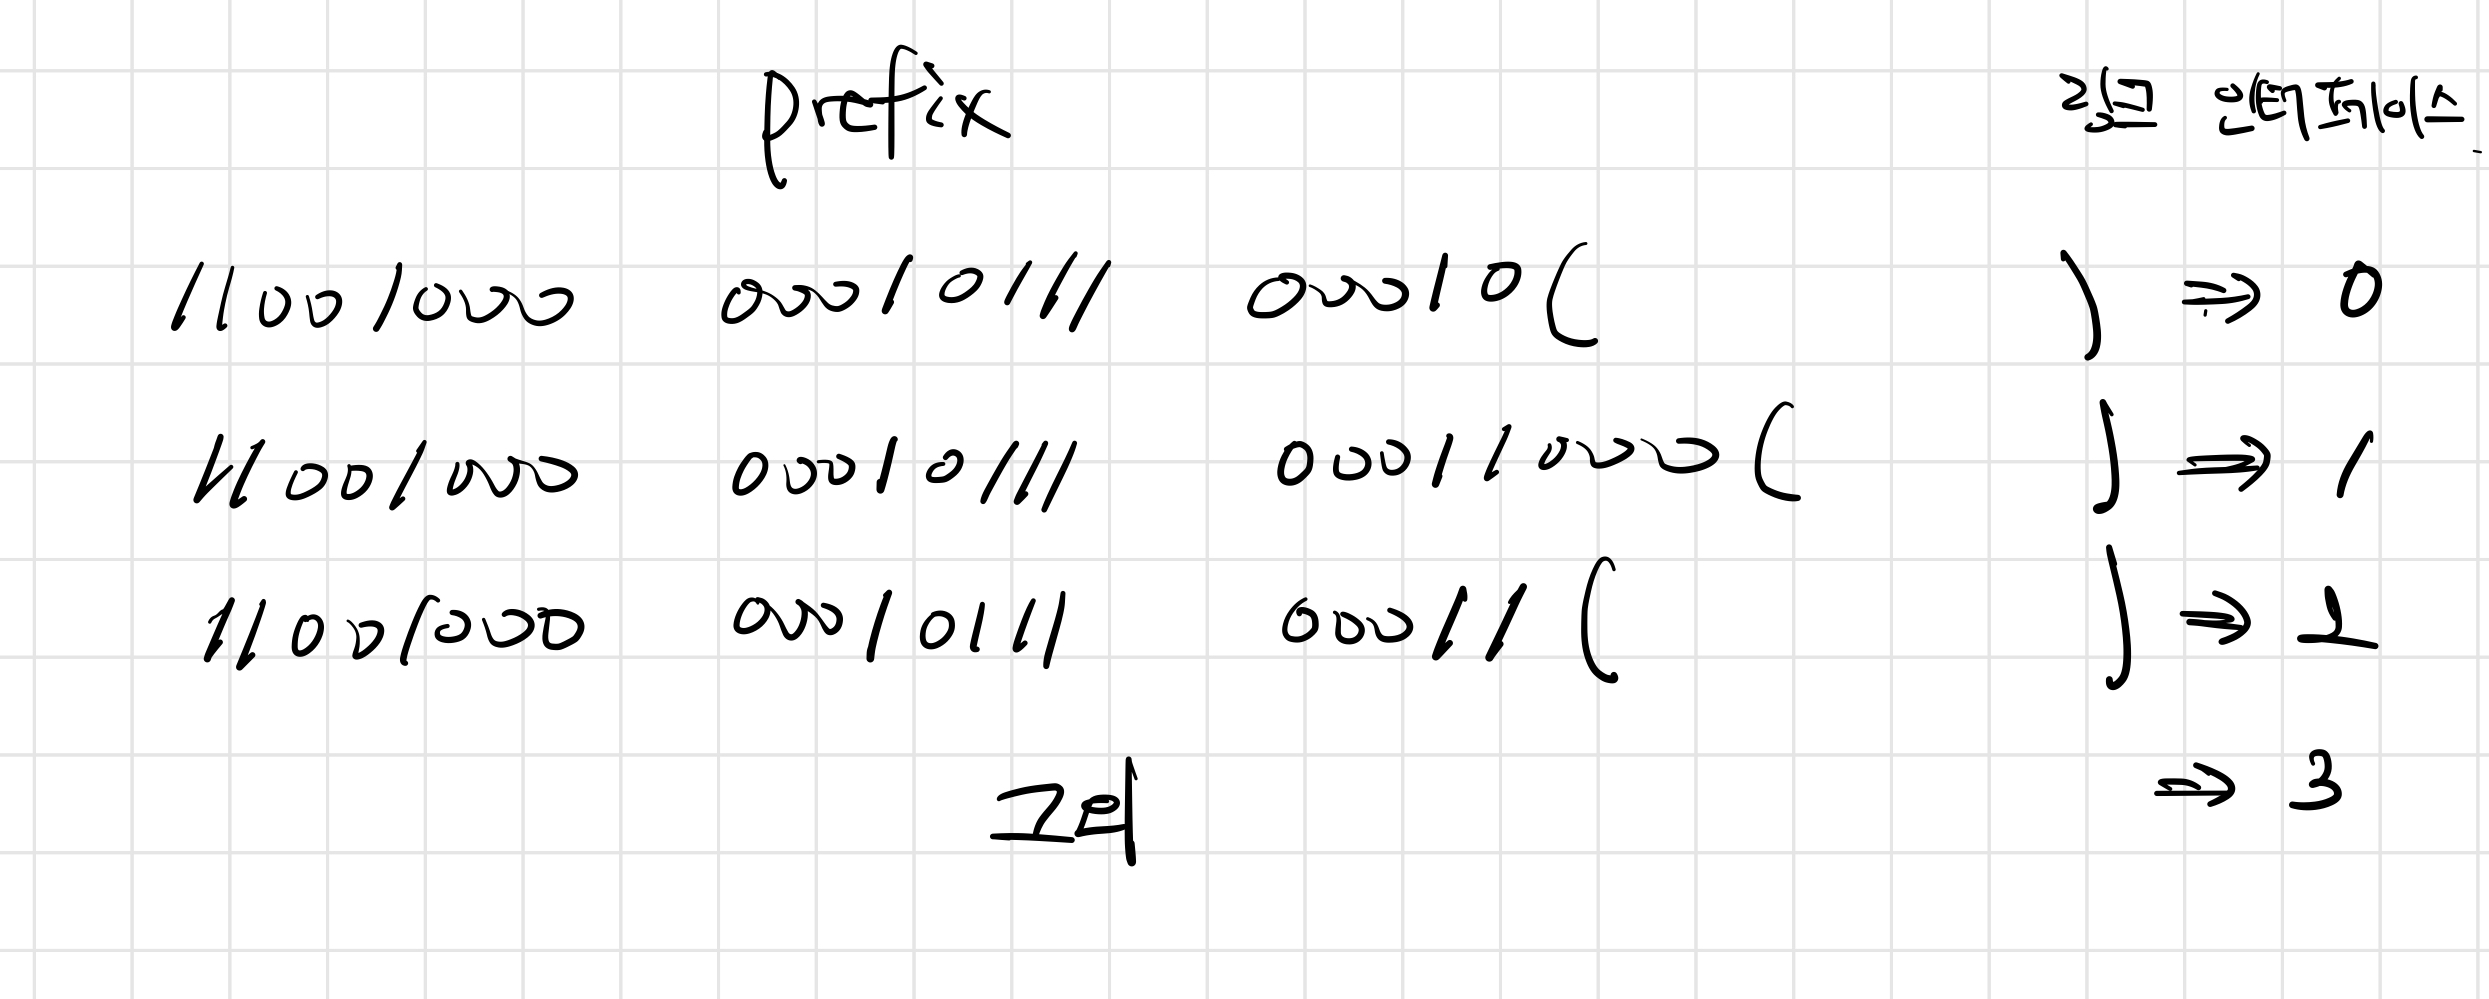 Prefix 링크 인터페이스
11001000 00010111 00010( ) ⇒ 0
11001000 00010111 00011000( ) ⇒ 1
11001000 00010111 00011( ) ⇒ 2
그외 ⇒ 3